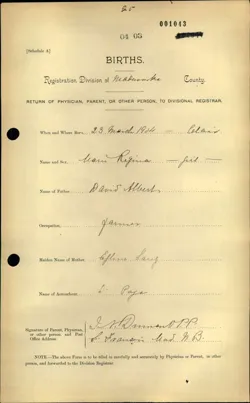 25
001043
04 03
[Schedule A]
BIRTHS.
Registration Division of Madawaska County.
RETURN OF PHYSICIAN, PARENT, OR OTHER PERSON, TO DIVISIONAL REGISTRAR.
When and Where Born, 23 March 1904 — Clair
Name and Sex, Marie Regina — girl —
Name of Father, David Albert
Occupation, farmer
Maiden Name of Mother,
Name of Accoucheur,
Signature of Parent, Physician,
or other person and Post
Office Address,
St. Francis Mad. N.B.
NOTE.—The above Form is to be filled in carefully and accurately by Physician or Parent, or other
person, and forwarded to the Division Registrar.